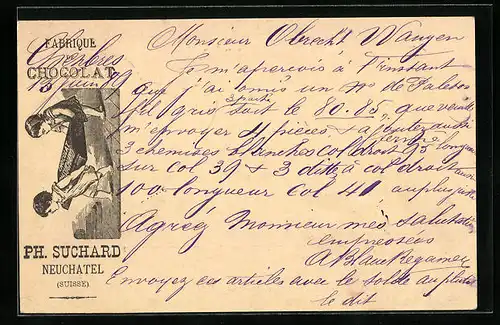 FABRIQUE
CHOCOLAT
PH. SUCHARD
NEUCHATEL
(SUISSE)
Chexbres
Juin 99
Monsieur Obrecht Wangen
Je m'aperçois à l'instant
que j'ai omis un No de
fil gris 3 pants soit le 80.85, que veuillez
m'envoyer 4 pièces, + ajoutez aussi
3 chemises blanches col droit 95 longueur
sur col 39 + 3 ditto à col droit
100 longueur col 41 au plus juste
Agréez Monsieur mes salutations
empressées
A Blanc Regamey
Envoyez ces articles avec le solde au plus
le dit